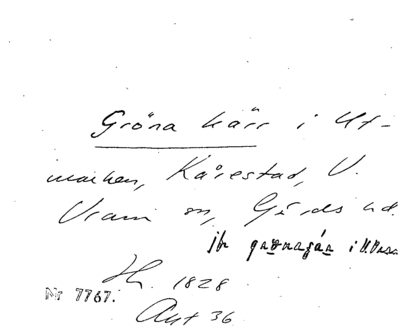 Gröna kärr i Ut-
marken, Kårestad, V.
Vram sn, Gärds hd.
jfr i V. Vram
1828
Nr 7767.
Akt 36